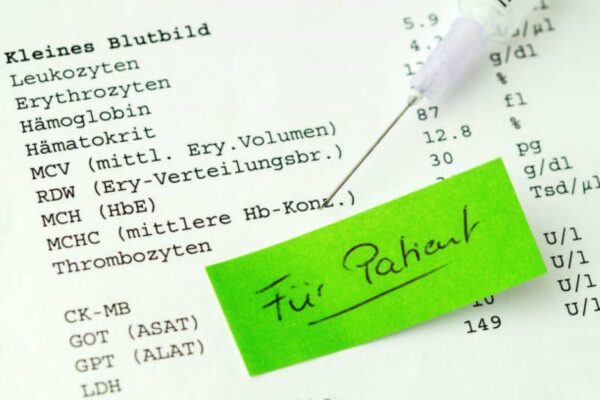 Kleines Blutbild
Leukozyten 5.9
Erythrozyten /µl
Hämoglobin g/dl
Hämatokrit %
MCV (mittl. Ery.Volumen) 87 fl
RDW (Ery-Verteilungsbr.) 12.8 %
MCH (HbE) 30 pg
MCHC (mittlere Hb-Konz.) g/dl
Thrombozyten Tsd/µl
Für Patient
CK-MB U/l
GOT (ASAT) U/l
GPT (ALAT) U/l
LDH 149